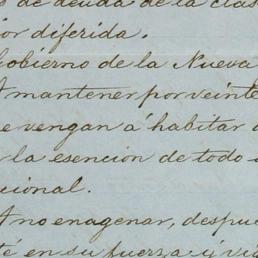 de deuda de la clas
or diferida.
obierno de la Nueva
A mantener por veinte
e vengan á habitar
la esencion de todo
cional.
A no enagenar, despue
té en su fuerza y vi